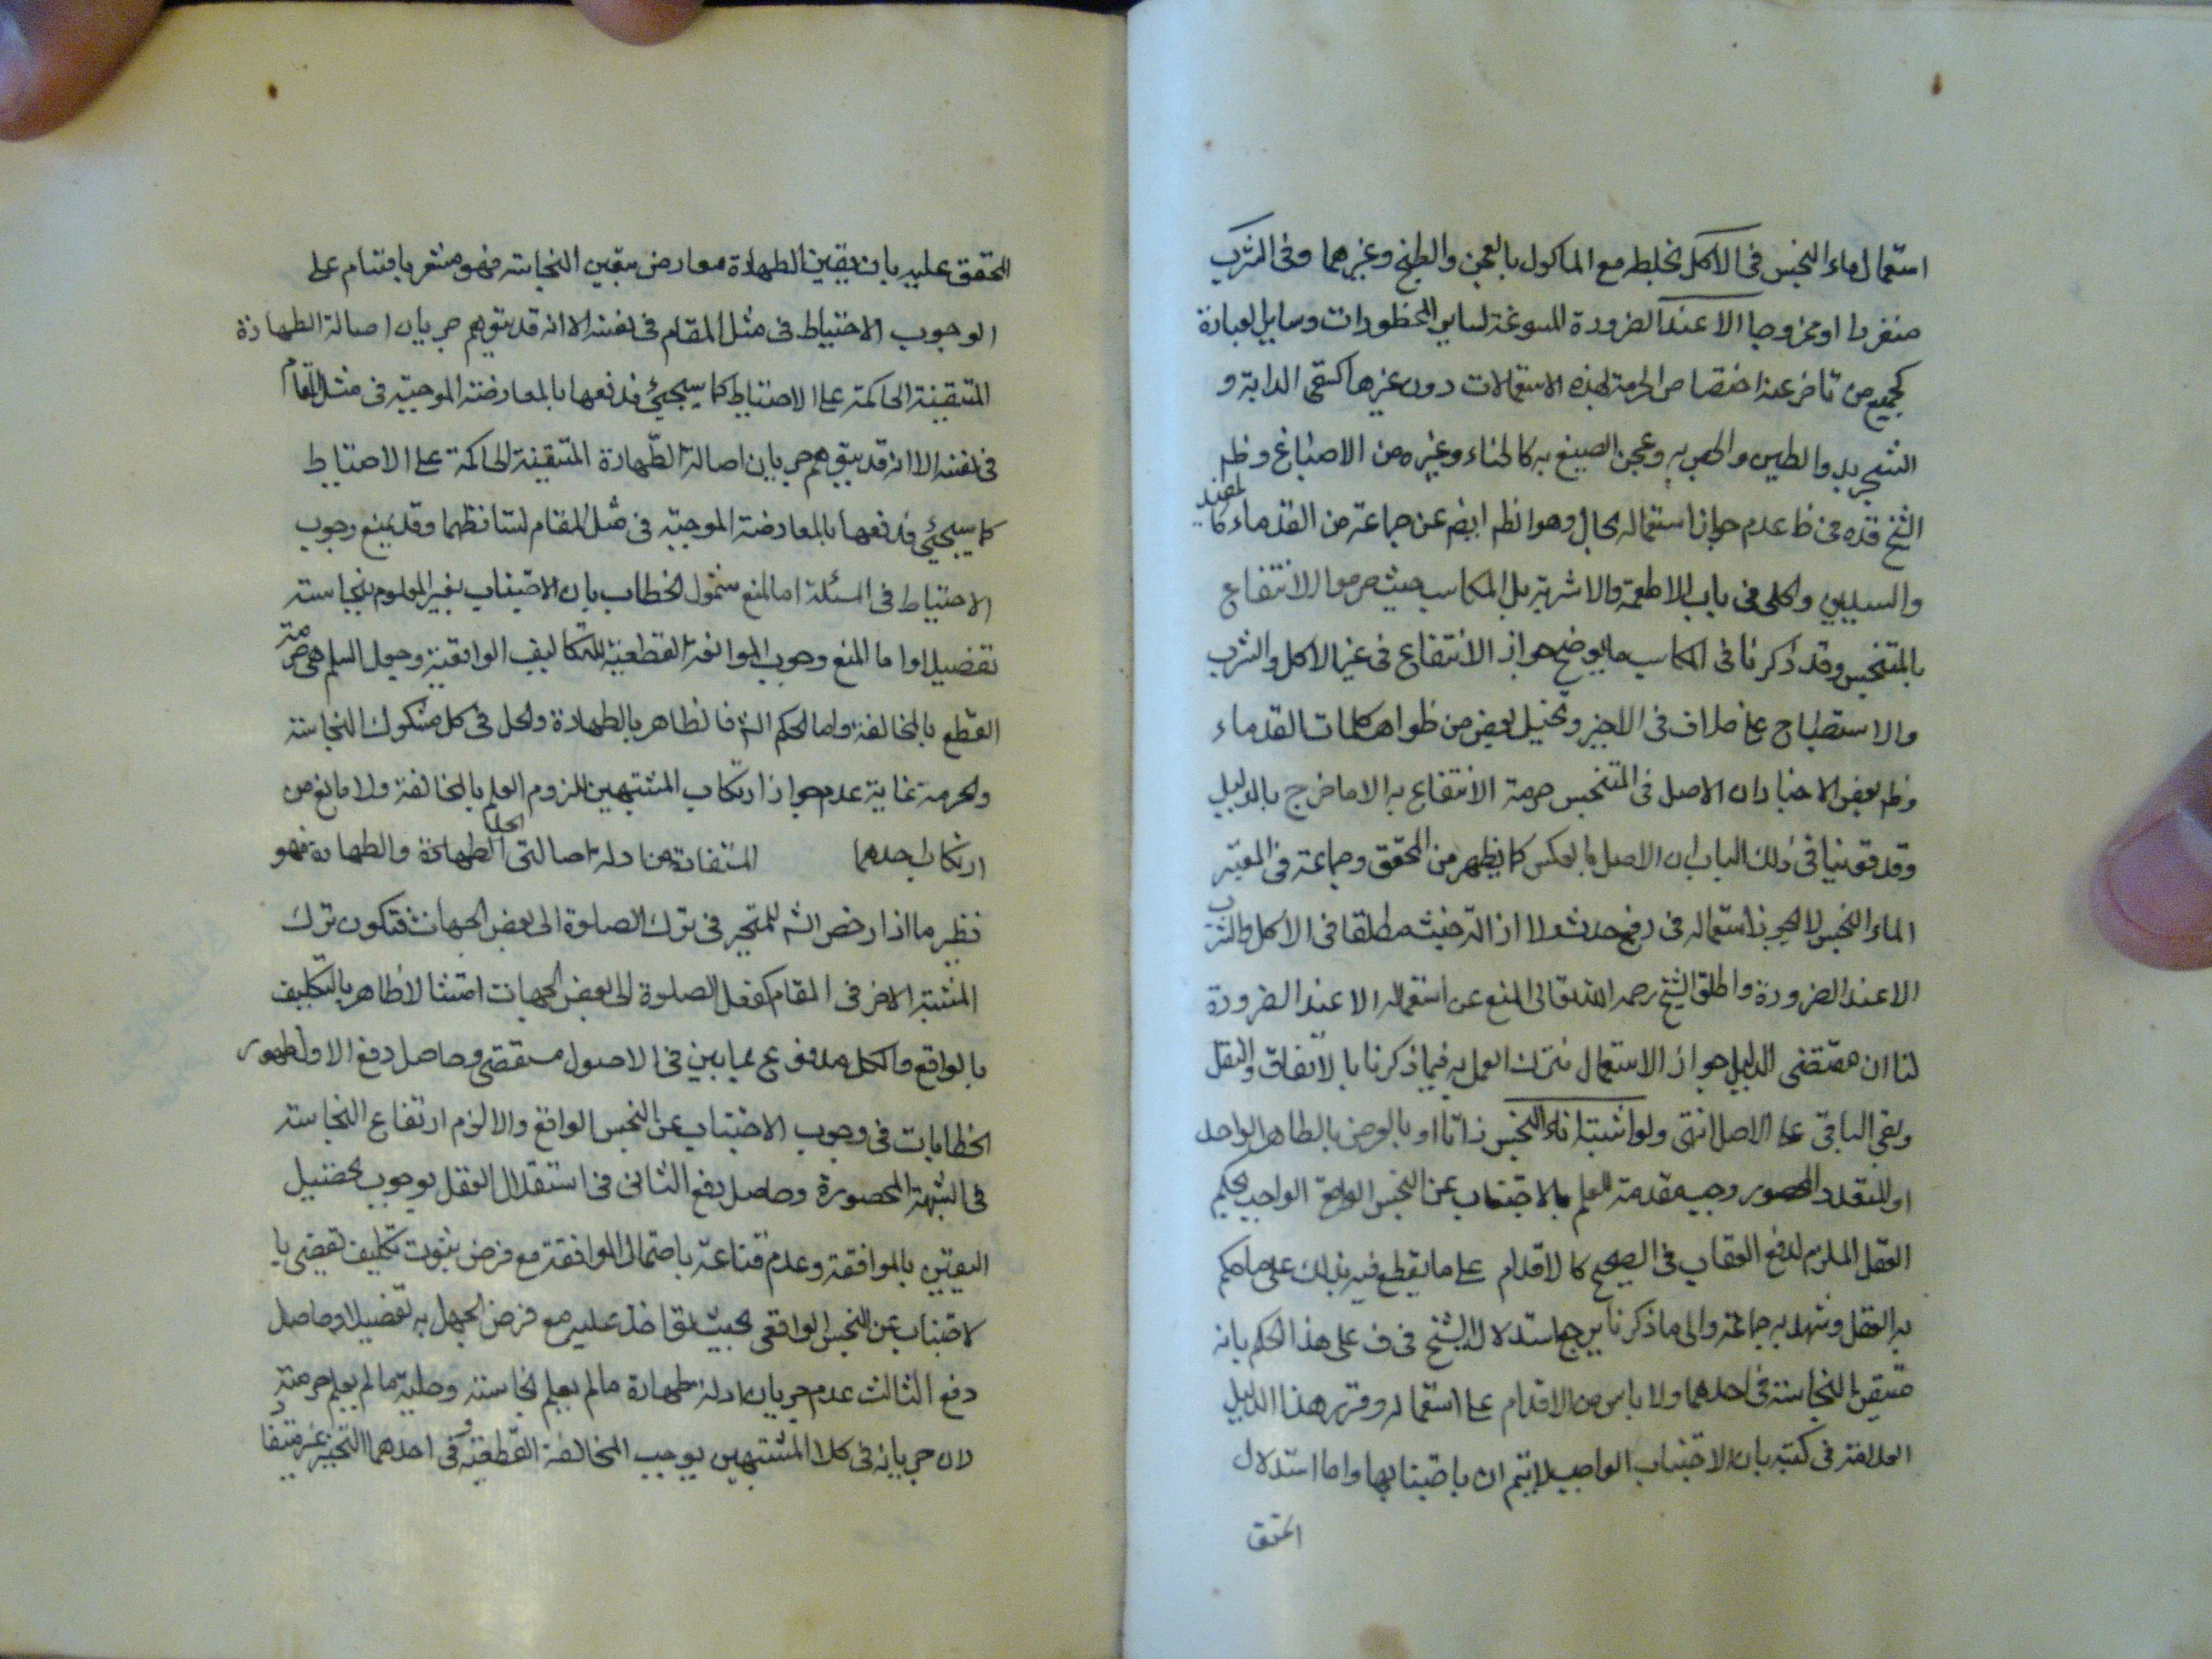 استعمال ماء النجس فى الاكل بخلطه مع الماكول بالعجن والطبخ وغيرهما وفى الشرب
منفردا او ممزوجا الا عند الضرورة المسوغة لساير المحظورات وساير العبارة
كجميع من تاخر عنه اختصاص الحرمة بهذه الاستعمالات دون غيرها كسقى الدابة و
الشجر بل والطين والجص به وعجن الصبغ به كالحناء وغيره من الاصباغ وظم
الشيخ قده فى ط عدم جواز استعماله بحال وهو الظم ايضم عن جماعة من القدماء كالمفيد
والسيدين والحلى فى باب الاطعمة والاشربة بل المكاسب حيث حرموا الانتفاع
بالمتنجس وقد ذكرنا فى المكاسب ما يوضح جواز الانتفاع فى غير الاكل والشرب
والاستصباح على خلاف فى الاخير وتخيل بعض من ظواهر كلمات القدماء
وظم بعض الاخبار ان الاصل فى المتنجس حرمة الانتفاع به الا ما خرج بالدليل
وقد قوينا فى ذلك الباب ان الاصل بالعكس كما يظهر من المحقق وجماعة فى المعتبر
الماء النجس لا يجوز استعماله فى رفع حدث ولا ازالة خبث مطلقا فى الاكل والشرب
الا عند الضرورة واطلق الشيخ رحمه الله تعالى المنع عن استعماله الا عند الضرورة
لنا ان مقتضى الدليل جواز الاستعمال فترك العمل به فيما ذكرنا بالاتفاق والنقل
وبقى الباقى على الاصل انتهى ولو اشتبه اناء النجس ذاتا او بالعرض بالطاهر الواحد
او المتعدد المحصور وجب مقدمة للعلم بالاجتناب عن النجس الواقعى الواجب بحكم
العقل الملزم لدفع العقاب فى الصحيح كالاقدام على ما يقطع فيه بذلك على ما حكم
به العقل وشهد به جماعة والى ما ذكرنا يرجع استدلال الشيخ فى ف على هذا الحكم بانه
متيقن النجاسة فى احدهما ولا باس من الاقدام على استعماله وقرر هذا الدليل
العلامة فى كتبه بان الاجتناب الواجب لا يتم ان باجتنابها واما استدلال
المحقق
المحقق عليه بان يقين الطهارة معارض بيقين النجاسة فهو مشعر بابتنائه على
الوجوب الاحتياط فى مثل المقام فى نفسه الا انه قد يتوهم جريان اصالة الطهارة
المتيقنة الحاكمة على الاحتياط كما سيجئ فدفعها بالمعارضة الموجبة فى مثل المقام
فى نفسه الا انه قد يتوهم جريان اصالة الطهارة المتيقنة الحاكمة على الاحتياط
كما سيجئ فدفعها بالمعارضة الموجبة فى مثل المقام لتساقطهما وقد يمنع وجوب
الاحتياط فى المسئلة اما لمنع شمول الخطاب بان الاجتناب بغير المعلوم بنجاسته
تفصيلا واما المنع وجوب الموافقة القطعية للتكاليف الواقعية وجعل المسلم هى حرمة
القطع بالمخالفة واما لحكم الشم فالظاهر بالطهارة والحل فى كل مشكوك النجاسة
والحرمة غاية عدم جواز ارتكاب المشتبهين للزوم العلم بالمخالفة ولا مانع من
ارتكاب احدهما المستفادة من ادلة اصالتى الطهارة الحل والطهارة فهو
نظير ما اذا رخص الشم للمتحير فى ترك الصلوة الى بعض الجهات فتكون ترك
المشتبه الاخر فى المقام كفعل الصلوة الى بعض الجهات امتثالا ظاهر بالتكليف
بالواقع والكل مدفوع بما يبين فى الاصول مستقصى وحاصل دفع الاول ظهور
الخطابات فى وجوب الاجتناب عن النجس الواقع والا لزم ارتفاع النجاسة
فى الشبهة المحصورة وحاصل دفع الثانى فى استقلال العقل بوجوب تحصيل
اليقين بالموافقة وعدم قناعة باحتمال الموافقة مع فرض ثبوت تكليف تقضى با
لاجتناب عن النجس الواقعى بحيث يؤاخذ عليه مع فرض الجهل به تفصيلا وحاصل
دفع الثالث عدم جريان ادلة طهارة ما لم يعلم نجاسته وحلية ما لم يعلم حرمته
لان جريانه فى كلا المشتبهين يوجب المخالفة القطعية وفى احدهما التخيير غير مستفاد